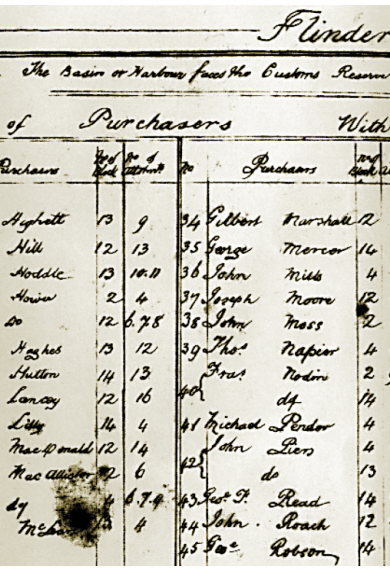 Flinder
The Basin or Harbour faces the Customs Reserv
of Purchasers With
Purchasers No of Block No of Allotmts No Purchasers No of Block
Highett 13 9 34 Gilbert Marshall 12
Hill 12 13 35 George Mercer 14
Hoddle 13 10.11 36 John Mills 4
Howie 2 4 37 Joseph Moore 12
do 12 6.7.8 38 John Moss 2
Hughes 13 12 39 Thos. Napier 4
Hutton 14 13 Fras. Nodin 2
Lancey 12 16 40 do 14
Lilly 14 4 41 Michael Pender 4
MacDonald 12 14 John Piers 4
Mac Allister 12 6 42 do 13
dy 6.7.9 43 Geo. F. Read 14
4 44 John Roach 12
45 Geoe Robson 14